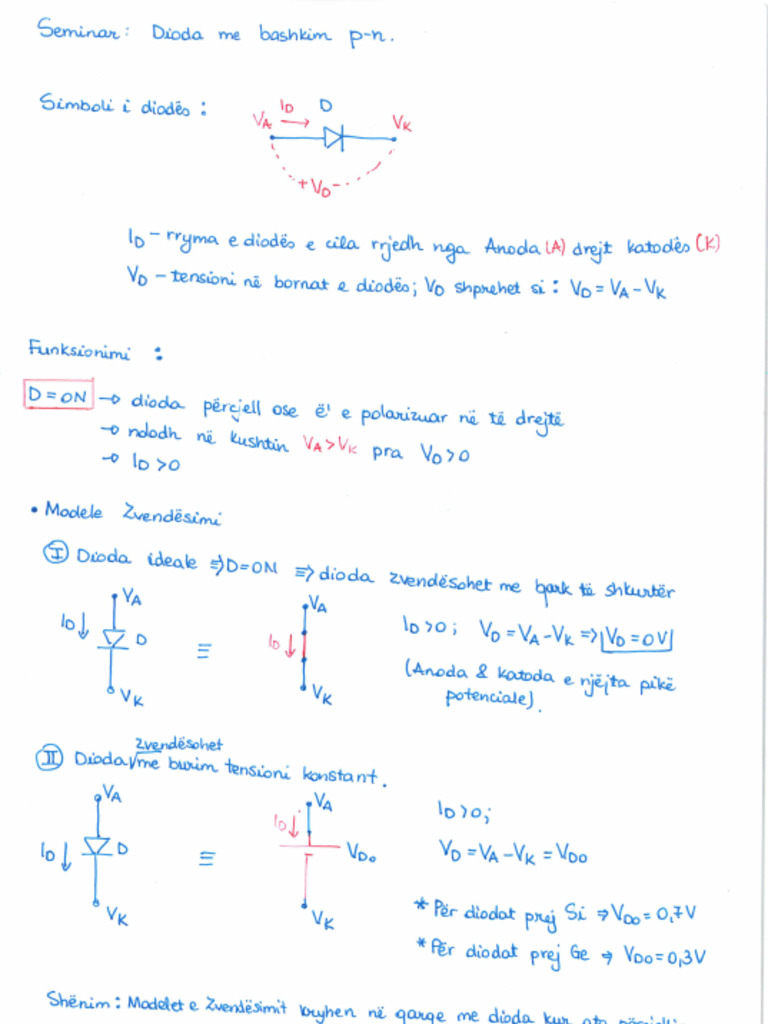 Seminar: Dioda me bashkim p-n.
Simboli i diodës :
I_D D
V_A V_K
+ V_D -
I_D – rryma e diodës e cila rrjedh nga Anoda (A) drejt katodës (K)
V_D – tensioni në bornat e diodës; V_D shprehet si : V_D = V_A - V_K
Funksionimi :
D = ON → dioda përçjell ose ë' e polarizuar në të drejtë
→ ndodh në kushtin V_A > V_K pra V_D > 0
→ I_D > 0
• Modele Zvendësimi
I Dioda ideale ⇒ D=ON ⇒ dioda zvendësohet me qark të shkurtër
V_A V_A
I_D ↓ D ≡ I_D ↓ I_D > 0 ; V_D = V_A - V_K ⇒ V_D = 0V
(Anoda & katoda e njëjta pikë
V_K V_K potenciale).
zvendësohet
II Dioda me burim tensioni konstant.
V_A V_A I_D > 0;
I_D ↓
I_D ↓ D ≡ V_Do V_D = V_A - V_K = V_DO
V_K V_K
* Për diodat prej Si ⇒ V_DO = 0,7V
* Për diodat prej Ge ⇒ V_DO = 0,3V
Shënim : Modelet e Zvendësimit kryhen në qarqe me dioda kur ato